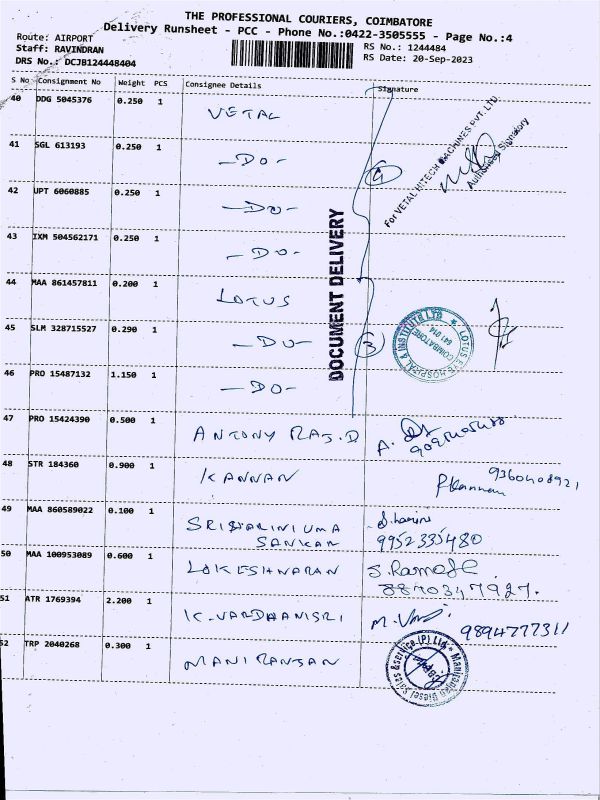 THE PROFESSIONAL COURIERS, COIMBATORE
Delivery Runsheet - PCC - Phone No.:0422-3505555 - Page No.:4
Route: AIRPORT
Staff: RAVINDRAN
RS No.: 1244484
DRS No.: DCJB124448404
RS Date: 20-Sep-2023
S No Consignment No Weight PCS Consignee Details Signature
40 DDG 5045376 0.250 1 VETAL
41 SGL 613193 0.250 1 -DO-
42 UPT 6060885 0.250 1 -DO-
43 IXM 504562171 0.250 1 -DO-
44 MAA 861457811 0.200 1 LOTUS
45 SLM 328715527 0.290 1 -DO-
46 PRO 15487132 1.150 1 -DO-
47 PRO 15424390 0.500 1 ANTONY RAJ.D A.
48 STR 184360 0.900 1 KANNAN PKannan 9360408921
49 MAA 860589022 0.100 1 SRISHARINI UMA
SANKAR 9952335480
50 MAA 100953089 0.600 1 LOKESHWARAN S. Ramesh
8870347927.
51 ATR 1769394 2.200 1 K.VARDHANISRI 9894777311
52 TRP 2040268 0.300 1 MANIRANJAN
DOCUMENT DELIVERY
For VETAL HITECH MACHINES PVT. LTD.
Authorised Signatory
LOTUS EYE HOSPITAL & INSTITUTE LTD
COIMBATORE
641 014
Maniranjan Diesel Sales & Service (P) Ltd